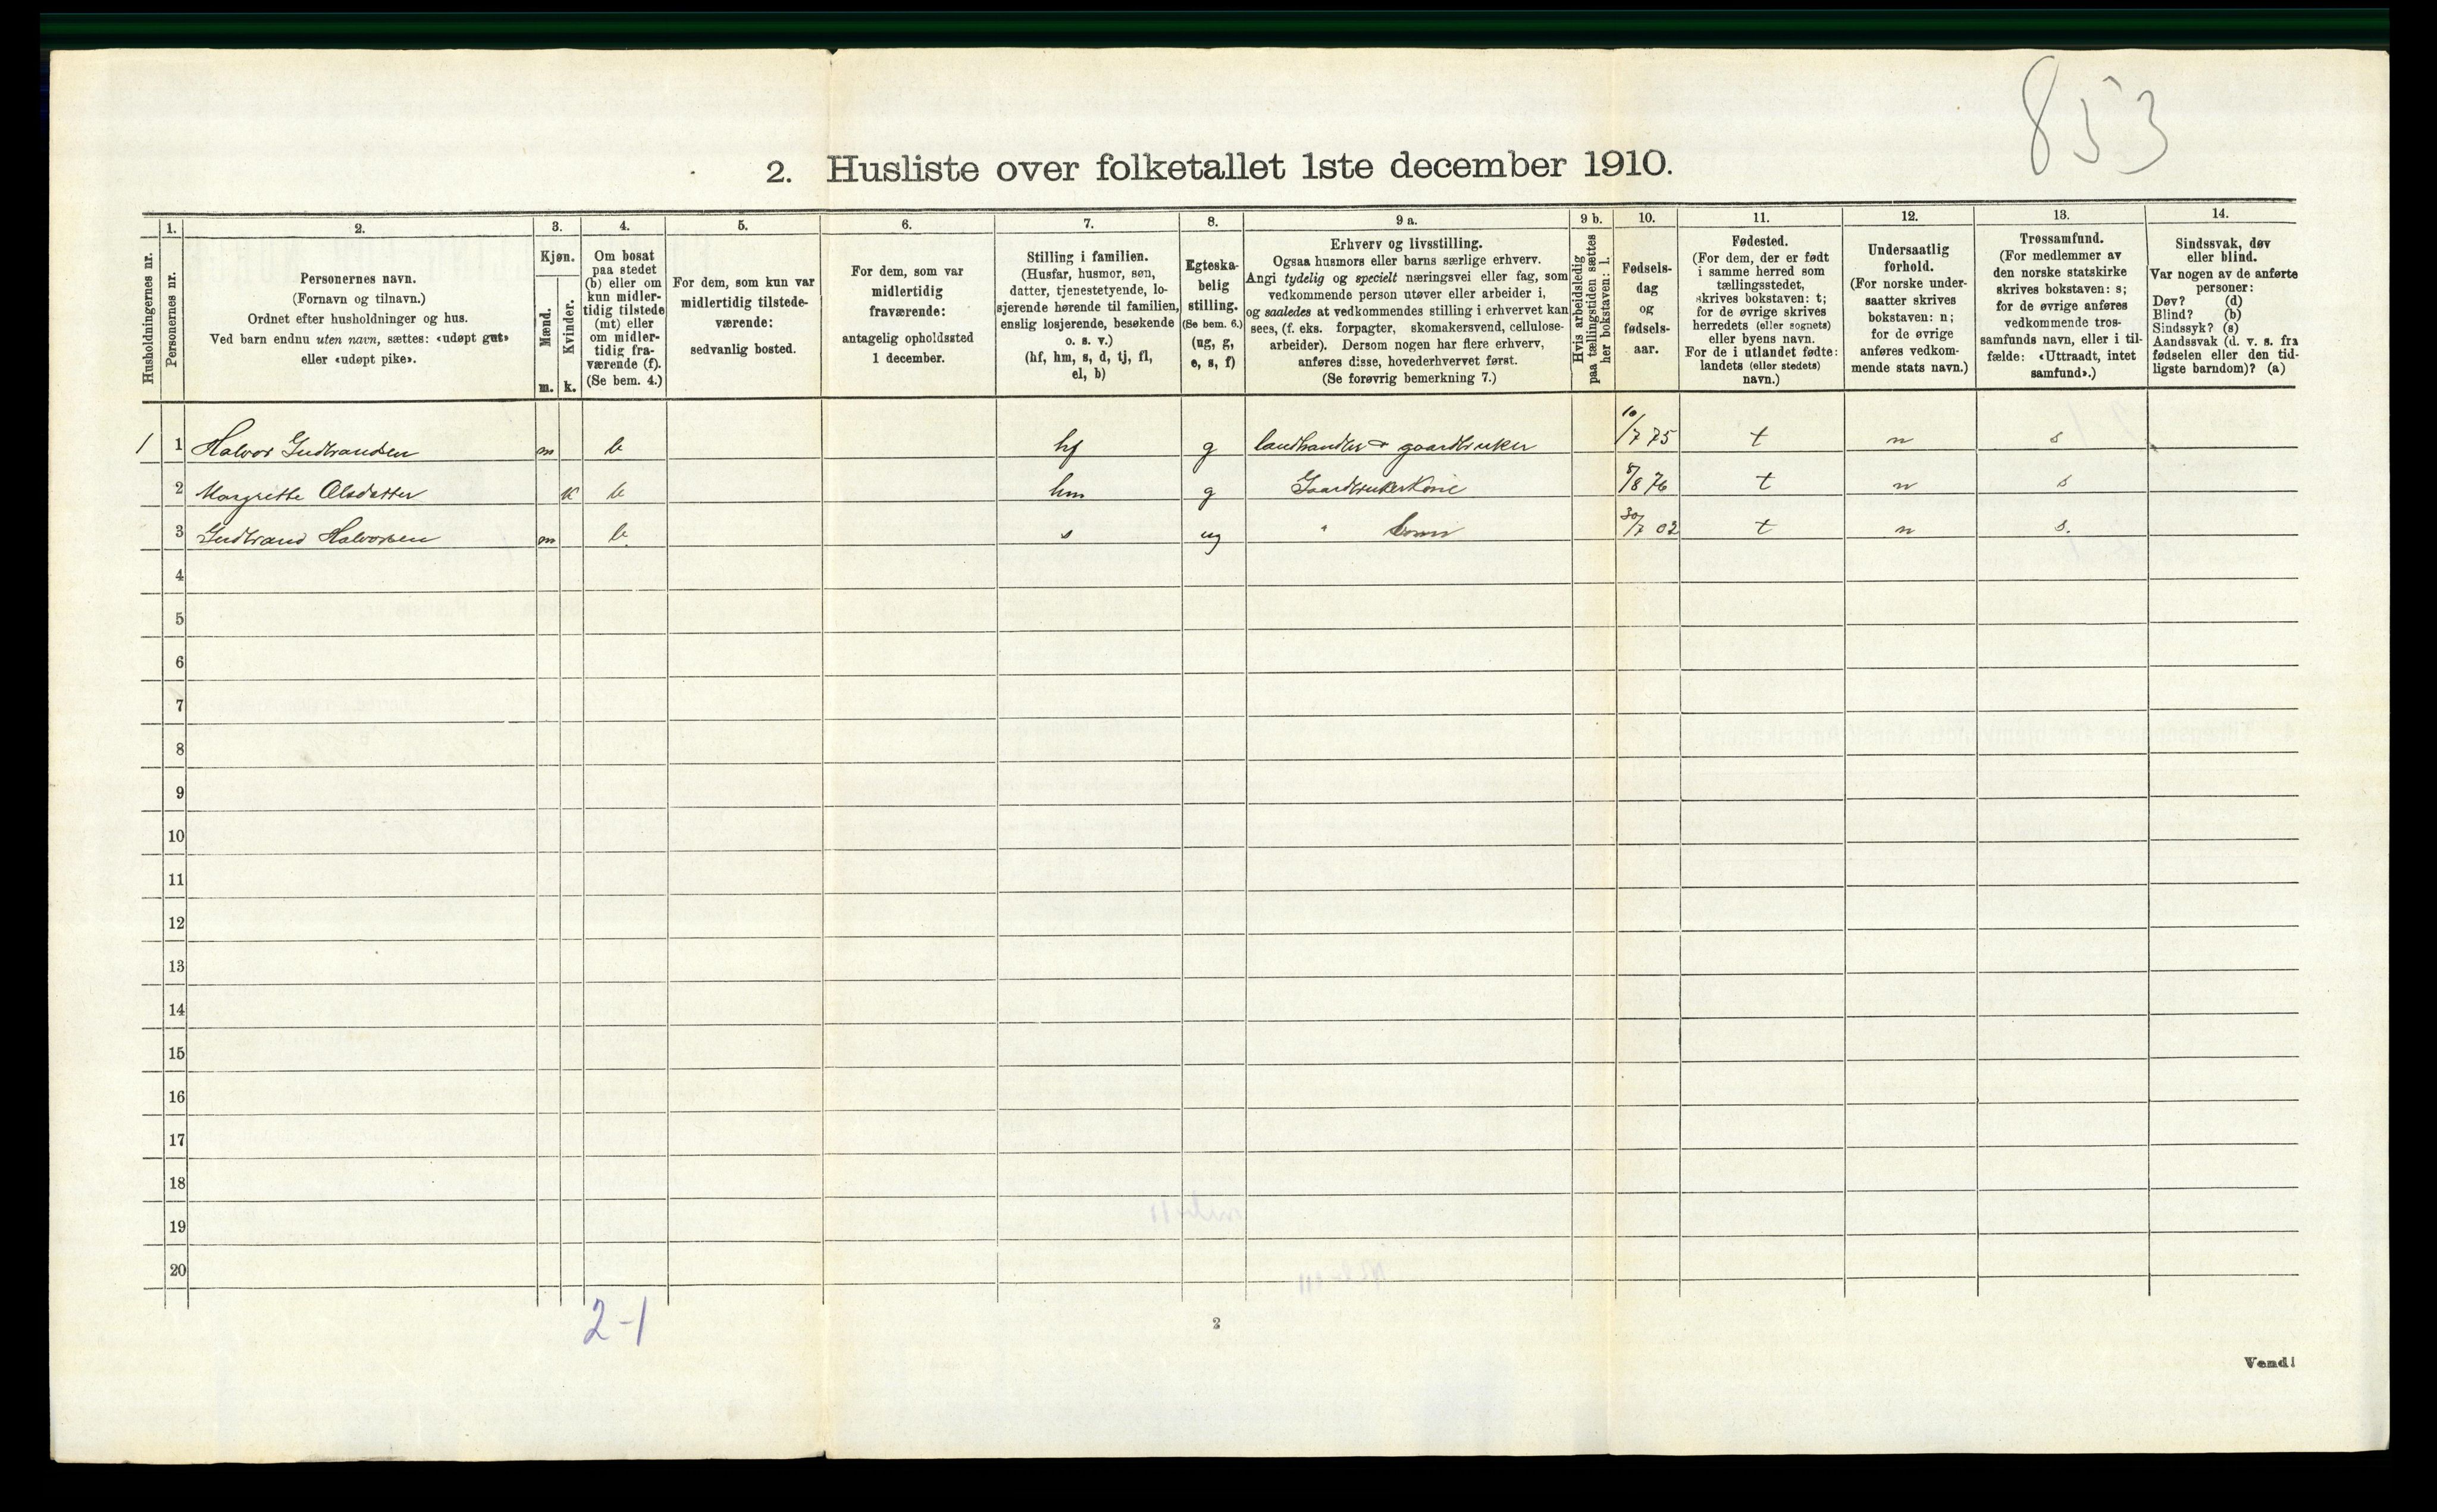 853
2. Husliste over folketallet 1ste december 1910.
Husholdningernes nr.
1.
Personernes nr.
2.
Personernes navn.
(Fornavn og tilnavn.)
Ordnet efter husholdninger og hus.
Ved barn endnu uten navn, sættes: «udøpt gut»
eller «udøpt pike».
3.
Kjøn.
Mænd.
m.
Kvinder.
k.
4.
Om bosat
paa stedet
(b) eller om
kun midler-
tidig tilstede
(mt) eller
om midler-
tidig fra-
værende (f).
(Se bem. 4.)
5.
For dem, som kun var
midlertidig tilstede-
værende:
sedvanlig bosted.
6.
For dem, som var
midlertidig
fraværende:
antagelig opholdssted
1 december.
7.
Stilling i familien.
(Husfar, husmor, søn,
datter, tjenestetyende, lo-
sjerende hørende til familien,
enslig losjerende, besøkende
o. s. v.)
(hf, hm, s, d, tj, fl,
el, b)
8.
Egteska-
belig
stilling.
(Se bem. 6.)
(ug, g,
e, s, f)
9 a.
Erhverv og livsstilling.
Ogsaa husmors eller barns særlige erhverv.
Angi tydelig og specielt næringsvei eller fag, som
vedkommende person utøver eller arbeider i,
og saaledes at vedkommendes stilling i erhvervet kan
sees, (f. eks. forpagter, skomakersvend, cellulose-
arbeider). Dersom nogen har flere erhverv,
anføres disse, hovederhvervet først.
(Se forøvrig bemerkning 7.)
9 b.
Hvis arbeidsledig
paa tællingstiden sættes
her bokstaven: l.
10.
Fødsels-
dag
og
fødsels-
aar.
11.
Fødested.
(For dem, der er født
i samme herred som
tællingsstedet,
skrives bokstaven: t;
for de øvrige skrives
herredets (eller sognets)
eller byens navn.
For de i utlandet fødte:
landets (eller stedets)
navn.)
12.
Undersaatlig
forhold.
(For norske under-
saatter skrives
bokstaven: n;
for de øvrige
anføres vedkom-
mende stats navn.)
13.
Trossamfund.
(For medlemmer av
den norske statskirke
skrives bokstaven: s;
for de øvrige anføres
vedkommende tros-
samfunds navn, eller i til-
fælde: «Uttraadt, intet
samfund».)
14.
Sindssvak, døv
eller blind.
Var nogen av de anførte
personer:
Døv? (d)
Blind? (b)
Sindssyk? (s)
Aandssvak (d. v. s. fra
fødselen eller den tid-
ligste barndom)? (a)
1 1 Halvor Gudbrandsen m b hf g landhandler & gaardbruker 10/7 75 t n s
2 Margrethe Olsdatter k b hm g Gaardbrukerkone 8/8 76 t n s
3 Gudbrand Halvorsen m b s ug " 30/7 02 t n s.
4
5
6
7
8
9
10
11
12
13
14
15
16
17
18
19
20
2-1
2
Vend!